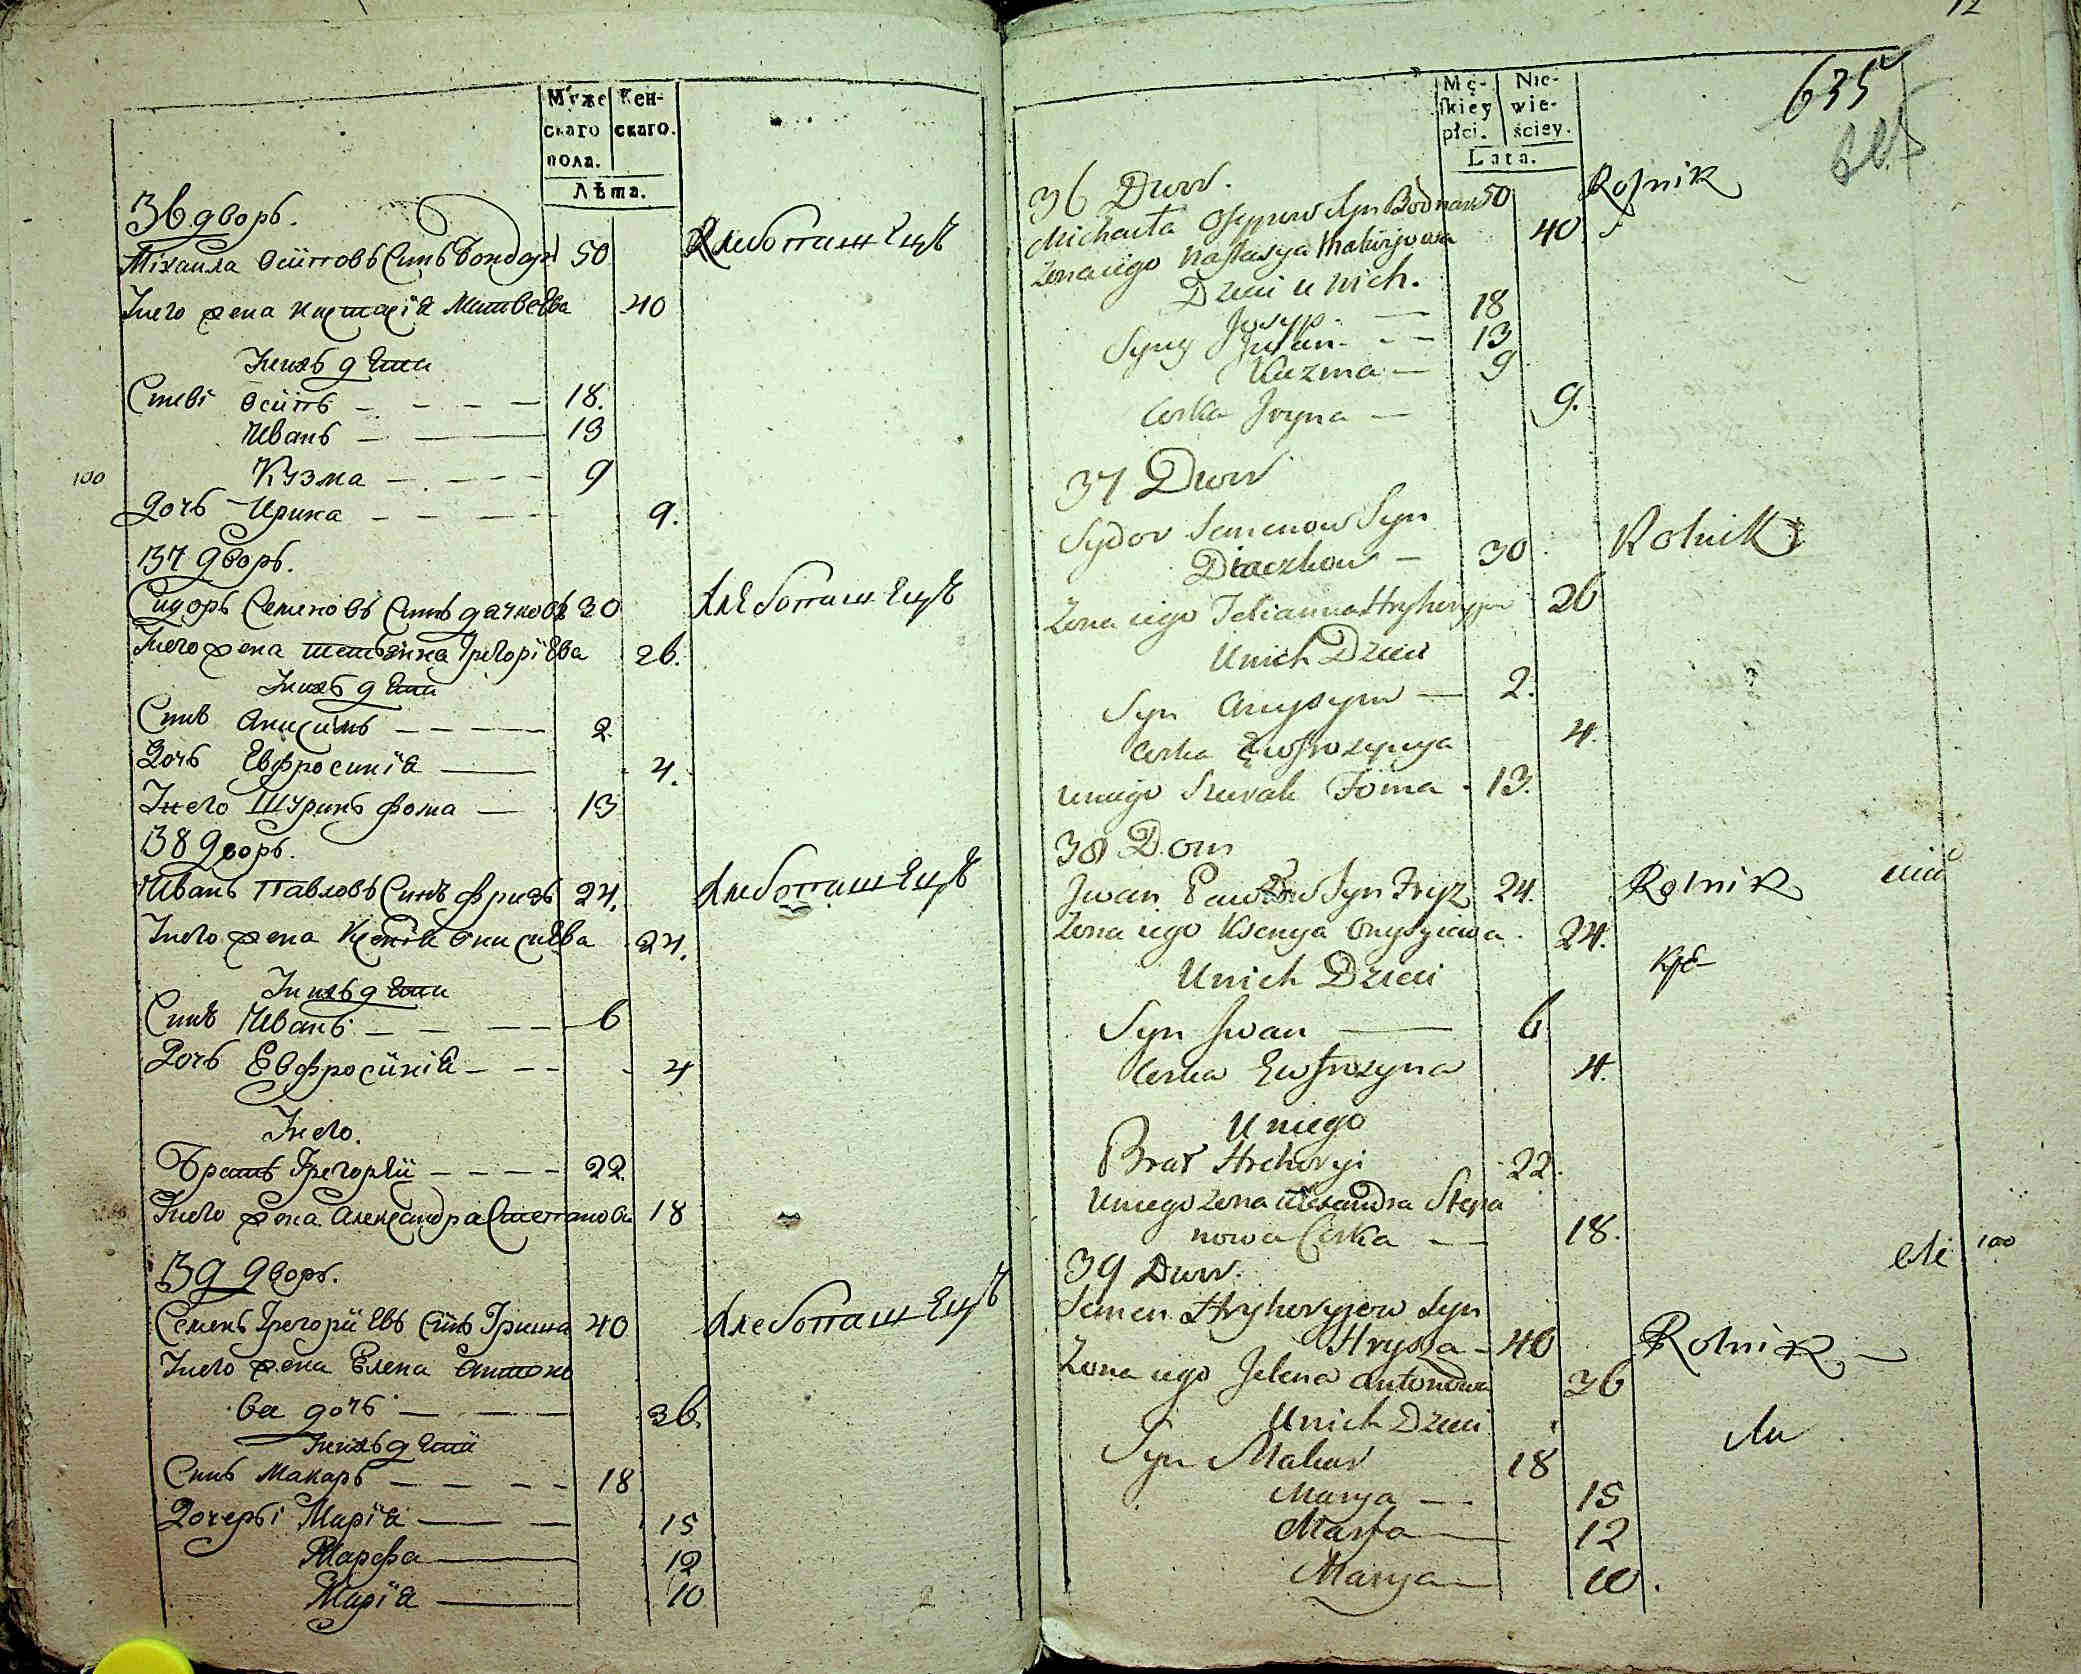 Муже скаго пола.
Жен- скаго.
Лѣта.
36 дворъ.
Міхаила Осиповъ Синъ Бондарь 50 Хлебопашецъ
Унего жена Настасія Матвеева 40
Унихъ дети
Сыеві Осипъ 18.
Иванъ 13
100 Кузма 9
Дочь Ирина 9.
37 дворъ.
Сидоръ Семеновъ Синъ дячковъ 30 Хлебопашецъ
Унего жена татьяна Григоріева 26.
Унихъ дети
Синъ Анисимъ 2.
Дочь Евфросинія 4.
Унего Шуринъ Фома 13
38 дворъ.
Иванъ Павловъ Синъ Фризъ 24. Хлебопашецъ
Унего жена Ксенія Онисиева 24.
Унихъ дети
Синъ Иванъ 6
Дочь Евфросинія 4
Унего.
Братъ Григорій 22.
Унего жена Александра Степанова 18
39 дворъ.
Семенъ Григориевъ Синъ Гриша 40 Хлебопашецъ
Унего жена Елена Антоно
ва дочь 36.
Унихъ дети
Синъ Макаръ 18
Дочерьі Марія 15
Марфа 12
Марія 10
12
635
Mę- skiey płci.
Nie- wie- ściey.
Lata.
36 Dwor.
Michaiła Osypow Syn Bodnar 50 Rolnik
Zona iego Nastasya Matwijowa 40
Dzieci u nich.
Josyp 18
Syny Iwan 13
Kuzma 9
Corka Iryna 9.
37 Dwor
Sydor Semenow Syn
Diaczkow 30 Rolnik
Zona iego Tetianna Hryhoryjew 26
Unich Dzieci
Syn Anysym 2.
Corka Ewfrozynya 4.
uniego Szurak Foma 13.
38 Dom
Iwan Pawłow Syn Fryz 24. Rolnik
Zona iego Ksenya Onysyiewa 24.
Unich Dzieci
Syn Iwan 6
Corka Ewfrozyna 4.
Uniego
Brat Hrehoryi 22.
Uniego Zona Alexandra Stepa
nowa Corka 18.
100
39 Dwor.
Semen Hryhoryjew Syn
Hrysza 40 Rolnik
Zona iego Jelena Antonowa 36
Unich Dzieci
Syn Makar 18
Marya 15
Marfa 12
Marya 10.